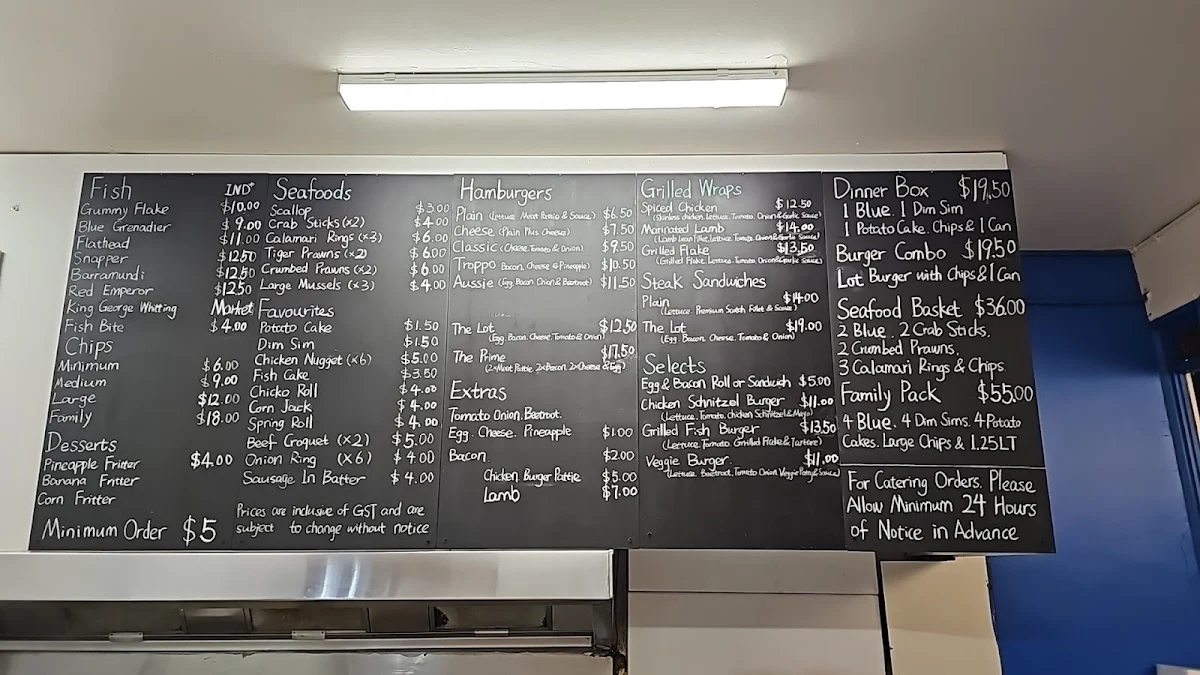 Fish IND*
Gummy Flake $10.00
Blue Grenadier $9.00
Flathead $11.00
Snapper $12.50
Barramundi $12.50
Red Emperor $12.50
King George Whiting Market
Fish Bite $4.00
Chips
Minimum $6.00
Medium $9.00
Large $12.00
Family $18.00
Desserts
Pineapple Fritter $4.00
Banana Fritter
Corn Fritter
Minimum Order $5
Seafoods
Scallop $3.00
Crab Sticks (x2) $4.00
Calamari Rings (x3) $6.00
Tiger Prawns (x2) $6.00
Crumbed Prawns (x2) $6.00
Large Mussels (x3) $4.00
Favourites
Potato Cake $1.50
Dim Sim $1.50
Chicken Nugget (x6) $5.00
Fish Cake $3.50
Chicko Roll $4.00
Corn Jack $4.00
Spring Roll $4.00
Beef Croquet (x2) $5.00
Onion Ring (x6) $4.00
Sausage In Batter $4.00
Prices are inclusive of GST and are
subject to change without notice
Hamburgers
Plain (Lettuce Meat Pattie & Sauce) $6.50
Cheese (Plain Plus Cheese) $7.50
Classic (Cheese, Tomato & Onion) $9.50
Troppo Bacon, Cheese & Pineapple) $10.50
Aussie (Egg Bacon Onion & Beetroot) $11.50
The Lot $12.50
(Egg, Bacon, Cheese, Tomato & Onion)
The Prime $17.50
(2xMeat Pattie 2xBacon 2xCheese & Egg)
Extras
Tomato Onion. Beetroot.
Egg. Cheese. Pineapple $1.00
Bacon $2.00
Chicken Burger Pattie $5.00
Lamb $7.00
Grilled Wraps
Spiced Chicken $12.50
(Skinless chicken, Lettuce, Tomato, Onion & Garlic Sauce)
Marinated Lamb $14.00
(Lamb Lean Fillet, Lettuce, Tomato, Onion & Garlic Sauce)
Grilled Flake $13.50
(Grilled Flake, Lettuce, Tomato, Onion & Garlic Sauce)
Steak Sandwiches
Plain $14.00
(Lettuce, Premium Scotch Fillet & Sauce)
The Lot $19.00
(Egg, Bacon, Cheese, Tomato & Onion)
Selects
Egg & Bacon Roll or Sandwich $5.00
Chicken Schnitzel Burger $11.00
(Lettuce, Tomato, chicken Schnitzel & Mayo)
Grilled Fish Burger $13.50
(Lettuce, Tomato Grilled Flake & Tartare)
Veggie Burger $11.00
(Lettuce, Beetroot, Tomato Onion Veggie Patty & Sauce)
Dinner Box $19.50
1 Blue. 1 Dim Sim
1 Potato Cake. Chips & 1 Can
Burger Combo $19.50
Lot Burger with Chips & 1 Can
Seafood Basket $36.00
2 Blue. 2 Crab Sticks,
2 Crumbed Prawns,
3 Calamari Rings & Chips
Family Pack $55.00
4 Blue. 4 Dim Sims. 4 Potato
Cakes. Large Chips & 1.25LT
For Catering Orders. Please
Allow Minimum 24 Hours
of Notice in Advance